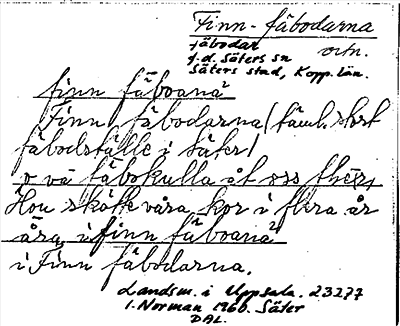 Finn-fäbodarna
fäbodar ortn.
f.d. Säters sn
Säters stad, Kopp. län.
finn fäboana
Finn fäbodarna (täml. stort
fäbodställe i Säter)
o va fäbokulla åt oss flera
Hon skötte våra kor i flera år
åra, i finn fäboana
i Finn fäbodarna.
Landsm. i Uppsala. 23277
I. Norman 1960. Säter
DAL.